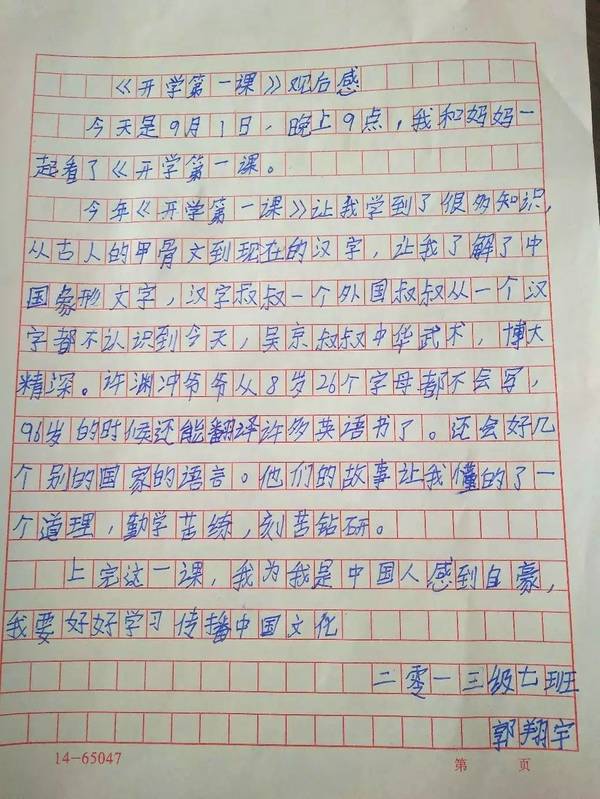 《开学第一课》观后感
今天是9月1日，晚上9点，我和妈妈一
起看了《开学第一课。
今年《开学第一课》让我学到了很多知识，
从古人的甲骨文到现在的汉字，让我了解了中
国象形文字，汉字叔叔一个外国叔叔从一个汉
字都不认识到今天，吴京叔叔中华武术，博大
精深。许渊冲爷爷从8岁26个字母都不会写，
96岁的时候还能翻译许多英语书了。还会好几
个别的国家的语言。他们的故事让我懂的了一
个道理，勤学苦练，刻苦钻研。
上完这一课，我为我是中国人感到自豪，
我要好好学习传播中国文化
二零一三级七班
郭翔宇
14-65047 第 页